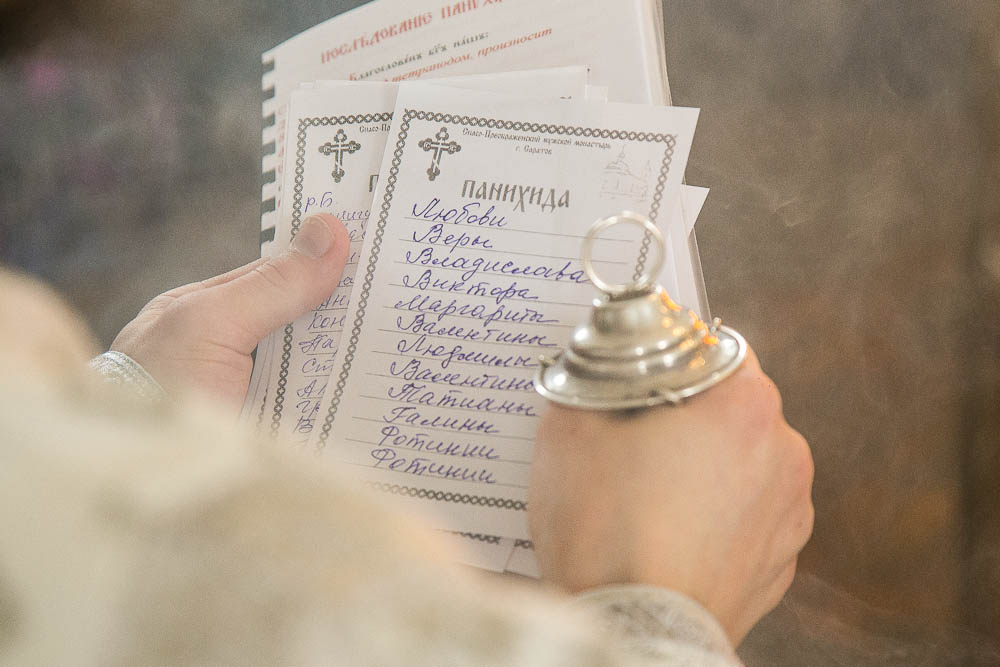 ПОСЛѢДОВАНІЕ ПАНУХИ
Благословенъ бг҃ъ нашъ:
тетраподом, произносит
Спасо-Преображенский мужской монастырь
г. Саратов
ПАНИХИДА
Любови
Веры
Владислава
Виктора
Маргариты
Валентины
Людмилы
Валентины
Татианы
Галины
Фотинии
Фотинии
Спасо-П
П
р.Б.